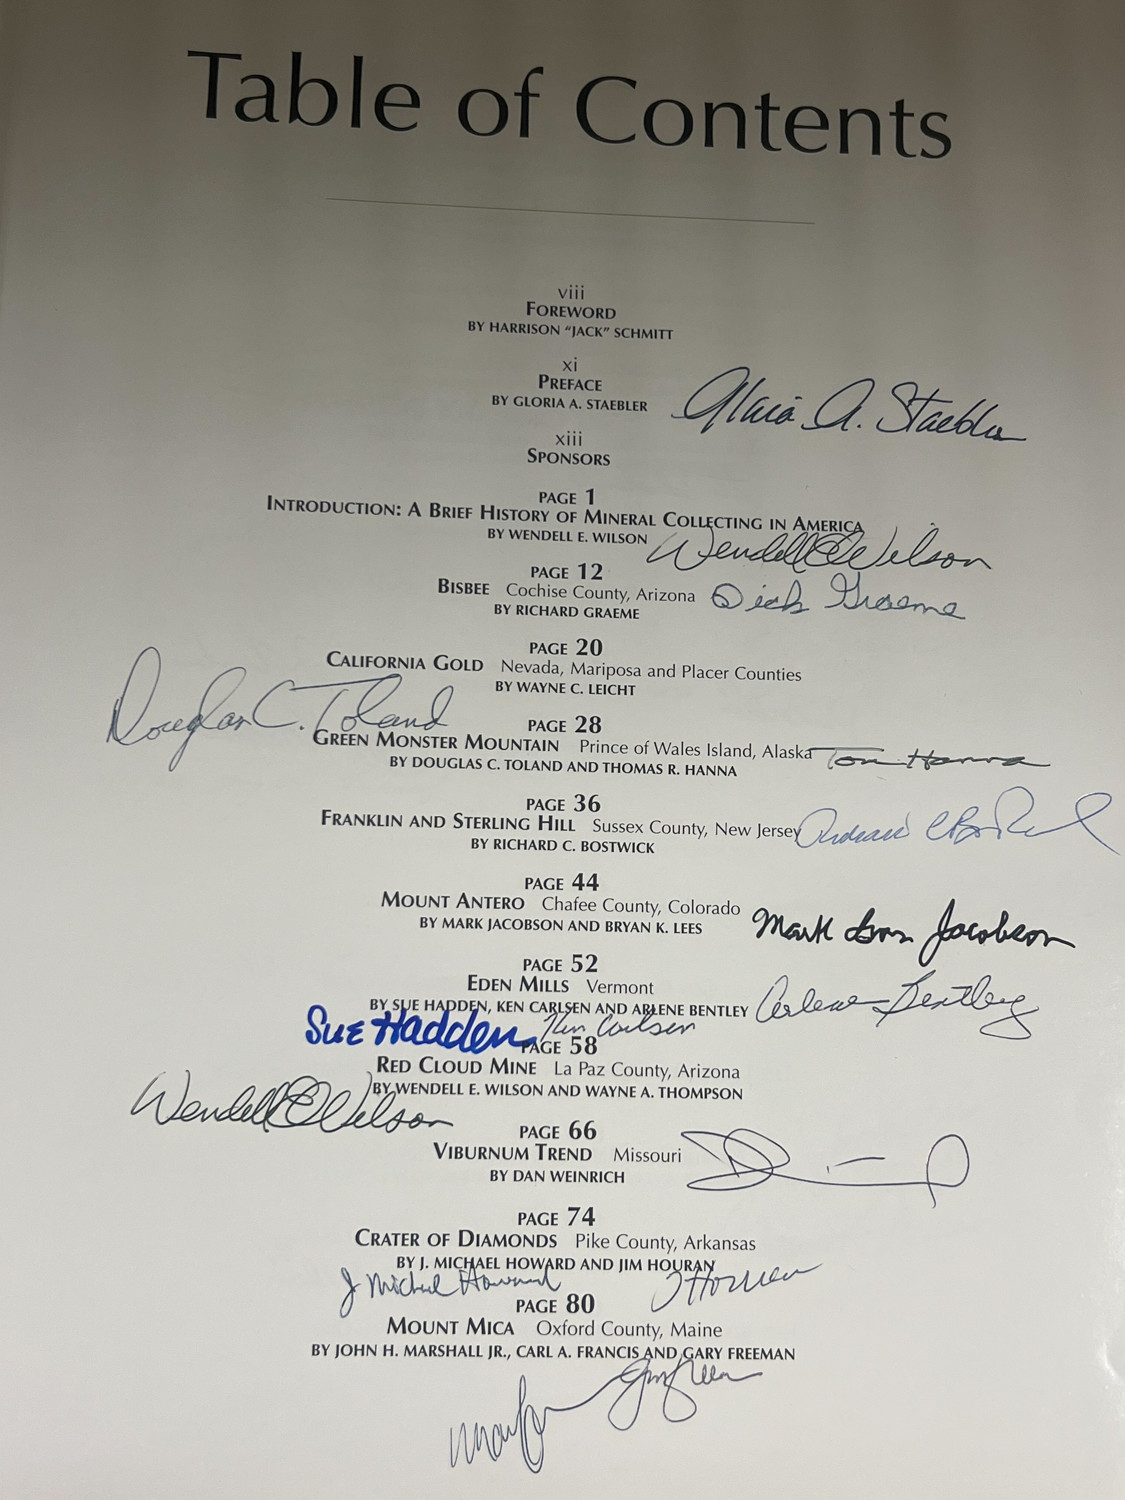 Table of Contents
viii
FOREWORD
BY HARRISON “JACK” SCHMITT
xi
PREFACE
BY GLORIA A. STAEBLER
Gloria A. Staebler
xiii
SPONSORS
PAGE 1
INTRODUCTION: A BRIEF HISTORY OF MINERAL COLLECTING IN AMERICA
BY WENDELL E. WILSON
Wendell E Wilson
PAGE 12
BISBEE Cochise County, Arizona
Dick Graeme
BY RICHARD GRAEME
PAGE 20
CALIFORNIA GOLD Nevada, Mariposa and Placer Counties
BY WAYNE C. LEICHT
Douglas C. Toland
PAGE 28
GREEN MONSTER MOUNTAIN Prince of Wales Island, Alaska
Tom Hanna
BY DOUGLAS C. TOLAND AND THOMAS R. HANNA
PAGE 36
FRANKLIN AND STERLING HILL Sussex County, New Jersey
BY RICHARD C. BOSTWICK
PAGE 44
MOUNT ANTERO Chafee County, Colorado
BY MARK JACOBSON AND BRYAN K. LEES
Mark Jacobson
PAGE 52
EDEN MILLS Vermont
BY SUE HADDEN, KEN CARLSEN AND ARLENE BENTLEY
Arlene Bentley
Sue Hadden
Ken Carlsen
PAGE 58
RED CLOUD MINE La Paz County, Arizona
BY WENDELL E. WILSON AND WAYNE A. THOMPSON
Wendell E Wilson
PAGE 66
VIBURNUM TREND Missouri
BY DAN WEINRICH
PAGE 74
CRATER OF DIAMONDS Pike County, Arkansas
BY J. MICHAEL HOWARD AND JIM HOURAN
J Michael Howard
J Houran
PAGE 80
MOUNT MICA Oxford County, Maine
BY JOHN H. MARSHALL JR., CARL A. FRANCIS AND GARY FREEMAN